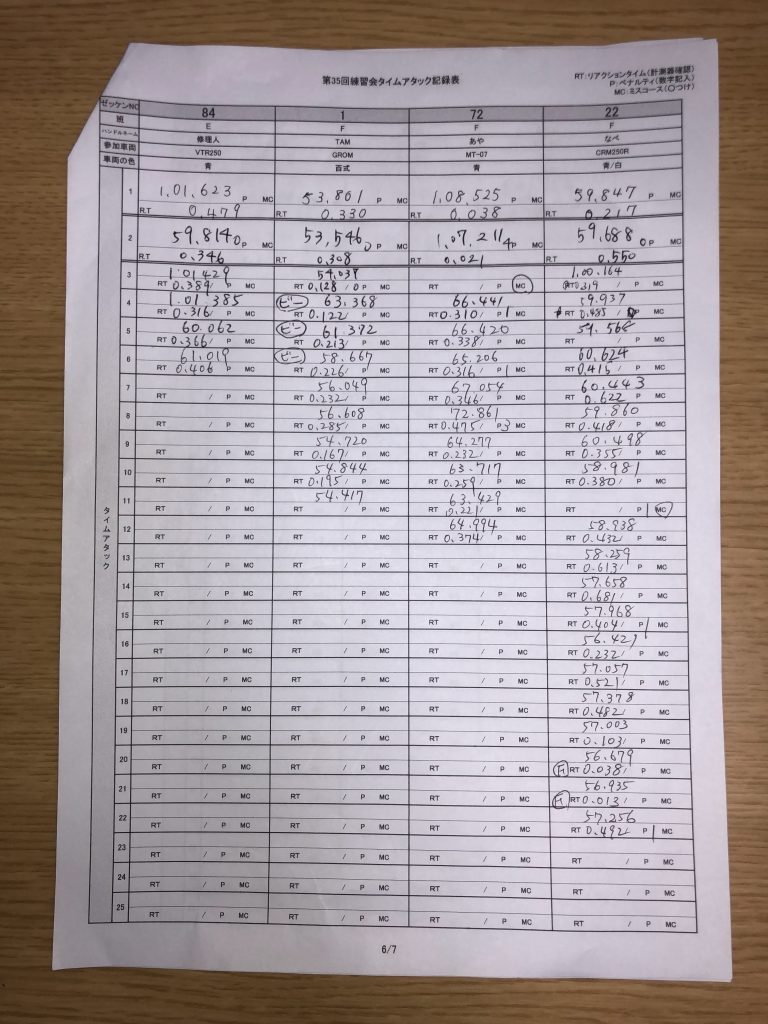 第35回練習会タイムアタック記録表
RT:リアクションタイム(計測器確認)
P:ペナルティ(数字記入)
MC:ミスコース(○つけ)
ゼッケンNO 84 1 72 22
班 E F F F
ハンドルネーム 修理人 TAM あや なべ
参加車両 VTR250 GROM MT-07 CRM250R
車両の色 青 百式 青 青/白
タイムアタック
1 1.01.623 P MC 53.861 P MC 1.08.525 P MC 59.847 P MC
R.T 0.479 R.T 0.330 R.T 0.038 R.T 0.217
2 59.814 0 P MC 53.546 0 P MC 1.07.211 4 P MC 59.688 0 P MC
R.T 0.346 R.T 0.308 R.T 0.021 R.T 0.550
3 1.01.429 54.039 1.00.164
RT 0.389/ P MC RT 0.128/0 P MC RT / P MC RT 0.319 / P MC
4 1.01.385 ビー 63.368 66.441 59.937
RT 0.316/ P MC RT 0.122/ P MC RT 0.310/ P 1 MC RT 0.485/ MC
5 60.062 ビー 61.372 66.420 59.568
RT 0.366/ P MC RT 0.213/ P MC RT 0.338/ P MC RT / P MC
6 61.019 ビー 58.667 65.206 60.624
RT 0.406 P MC RT 0.226/ P MC RT 0.316/ P 1 MC RT 0.415/ P MC
7 56.049 67.054 60.443
RT / P MC RT 0.232/ P MC RT 0.346/ P MC RT 0.622 P MC
8 56.608 72.861 59.860
RT / P MC RT 0.285/ P MC RT 0.475/ P 3 MC RT 0.418/ P MC
9 54.720 64.277 60.498
RT / P MC RT 0.167/ P MC RT 0.232/ P MC RT 0.355/ P MC
10 54.844 63.717 58.981
RT / P MC RT 0.195/ P MC RT 0.259/ P MC RT 0.380/ P MC
11 54.417 63.429
RT / P MC RT / P MC RT 0.221/ P MC RT / P 1 MC
12 64.994 58.938
RT / P MC RT / P MC RT 0.374/ P MC RT 0.432/ P MC
13 58.259
RT / P MC RT / P MC RT / P MC RT 0.613/ P MC
14 57.658
RT / P MC RT / P MC RT / P MC RT 0.681/ P MC
15 57.968
RT / P MC RT / P MC RT / P MC RT 0.404/ P 1 MC
16 56.421
RT / P MC RT / P MC RT / P MC RT 0.232/ P MC
17 57.057
RT / P MC RT / P MC RT / P MC RT 0.521/ P MC
18 57.378
RT / P MC RT / P MC RT / P MC RT 0.482/ P MC
19 57.003
RT / P MC RT / P MC RT / P MC RT 0.103/ P MC
20 56.679
RT / P MC RT / P MC RT / P MC RT 0.038/ P MC
21 56.935
RT / P MC RT / P MC RT / P MC RT 0.013/ P MC
22 57.256
RT / P MC RT / P MC RT / P MC RT 0.492/ P 1 MC
23 RT / P MC RT / P MC RT / P MC RT / P MC
24 RT / P MC RT / P MC RT / P MC RT / P MC
25 RT / P MC RT / P MC RT / P MC RT / P MC
6/7